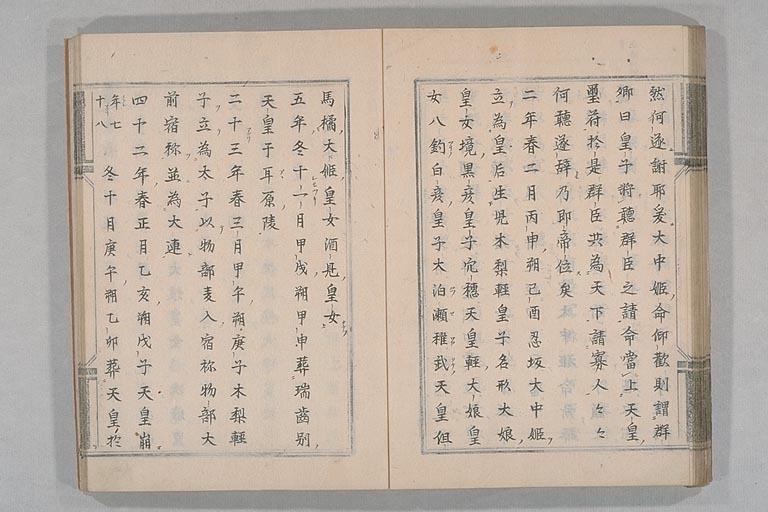 然何遂謝耶爰大中姫命仰歡則謂群
卿曰皇子將聽群臣之請命當上天皇
璽符於是群臣共為天下請寡人々々
何聽遂辞乃即帝位矣
二年春二月丙申朔己酉忍坂大中姫
立為皇后生是木梨輕皇子名形大娘
皇女境黒彦皇子完穗天皇輕大娘皇
女八釣白彦皇子大泊瀬稚武天皇但
馬橘大姫皇女酒是皇女
五年冬十一月甲戌朔甲申葬瑞齒別
天皇于耳原陵
二十三年春三月甲午朔庚子木梨輕
子立為太子以物部麦入宿祢物部大
前宿祢並為大連
四十二年春正月乙亥朔戊子天皇崩
年七十八
冬十月庚午朔乙卯葬天皇於